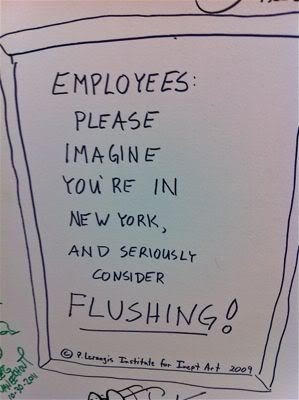 EMPLOYEES:
PLEASE
IMAGINE
YOU'RE IN
NEW YORK,
AND SERIOUSLY
CONSIDER
FLUSHING!
© P. Lerangis Institute for Inept Art 2009
10-30-2011